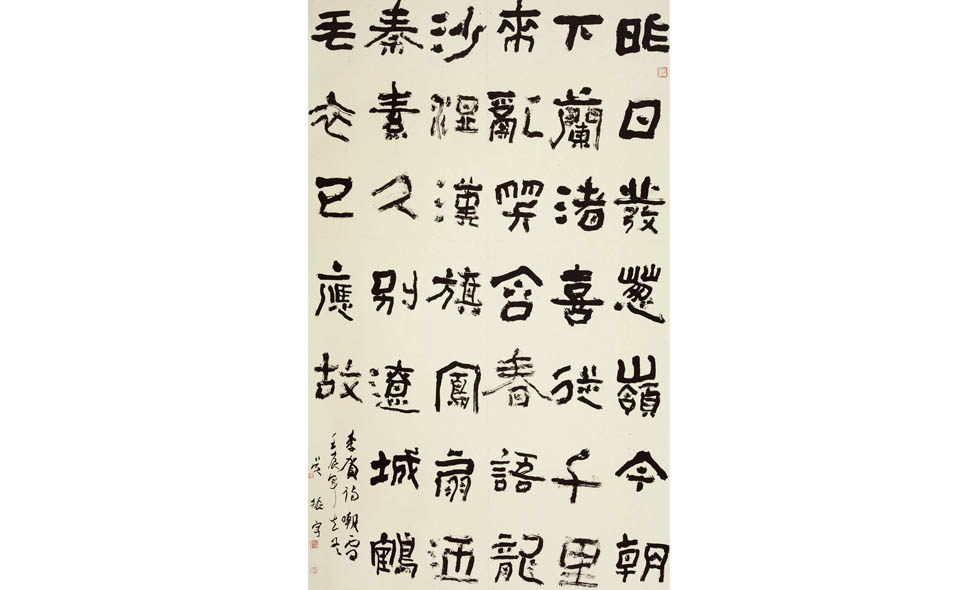 昨日發蔥嶺今朝
下蘭渚喜從千里
來亂笑含春語龍
沙溼漢旗鳳扇迎
秦素久別遼城鶴
毛衣已應故
李賀詩嘲雪
壬辰年